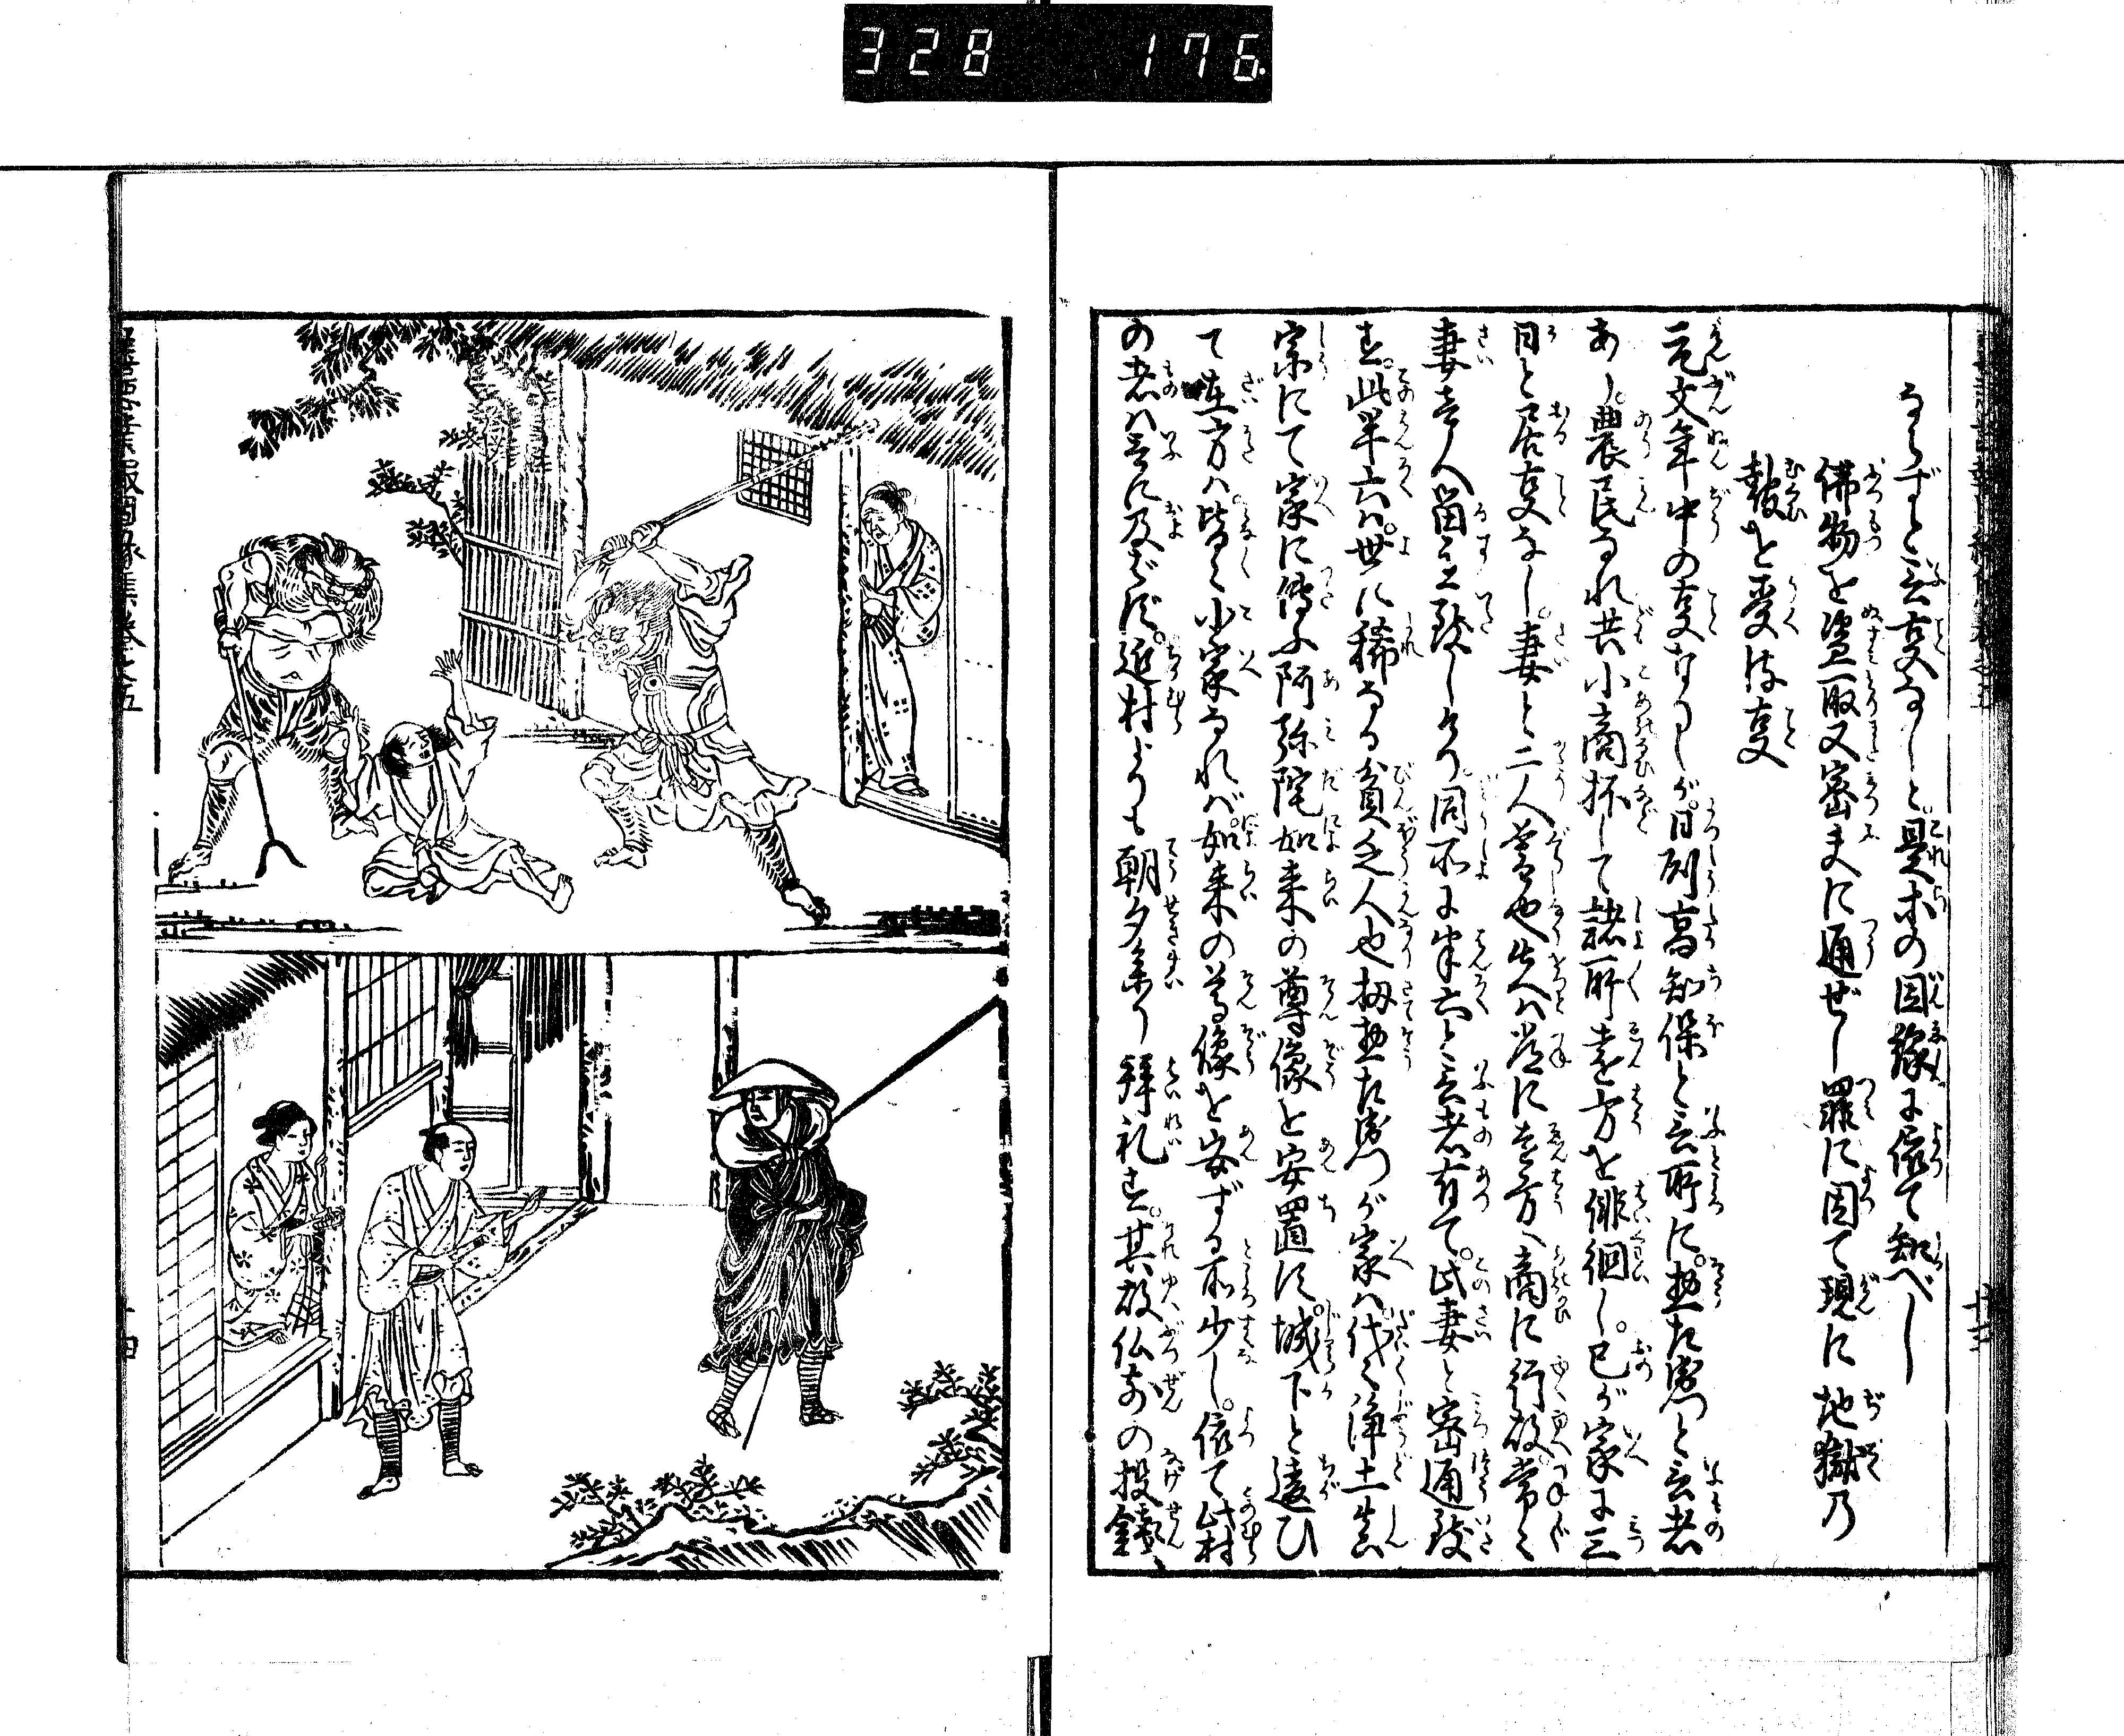 328 176
ならずと云事なしと。是等の因縁に依て知べし
佛物を盗取又密夫に通ぜし罪に因て現に地獄の
報を受る事
元文年中の事なりしが。日州高知保と云所に。惣左衛門と云者
あり。農民なれ共小商抔して諸所遠方を徘徊し。己が家に三
日と居事なし。妻と二人暮也。夫ハ常に遠方へ商に行故。常々
妻壱人留主致しけり。同所に半六と云者有て。此妻と密通致
す。此半六ハ。世に稀なる貧乏人也。扨惣左衛門が家ハ代々浄土真
宗にて家に傳ふ阿弥陀如来の尊像を安置す。城下と違ひ
て在方ハ皆々小家なれバ。如来の尊像を安ずる所少し。依て此村
の者ハ云に及ばず。近村よりも朝夕来り拝礼す。其故仏前の投銭